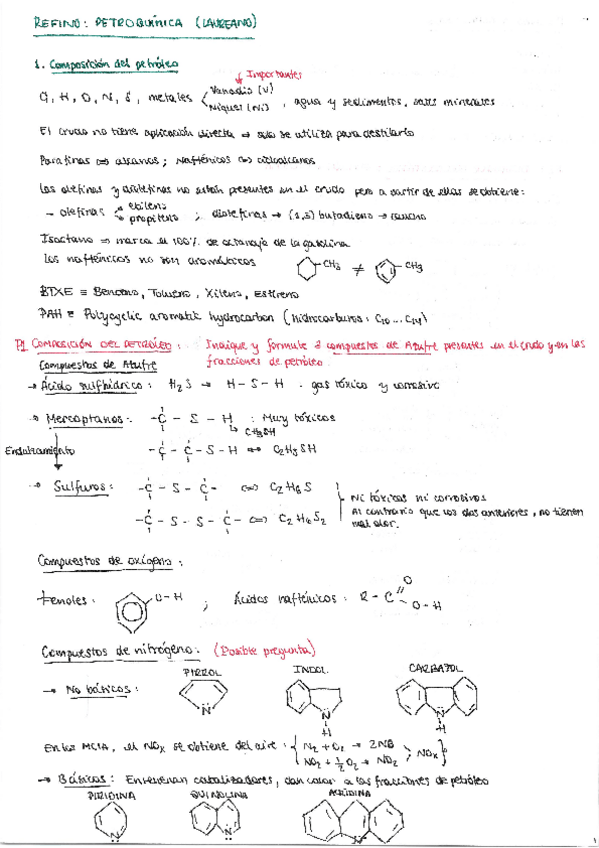 REFINO: PETROQUÍMICA (LAUREANO)
1. Composición del petróleo
Importantes
C, H, O, N, S, metales Vanadio (V) Níquel (Ni), agua y sedimentos, sales minerales
El crudo no tiene aplicación directa ⇒ solo se utiliza para destilarlo
Parafinas ⇔ alcanos; Nafténicos ⇔ cicloalcanos
Las olefinas y diolefinas no están presentes en el crudo pero a partir de ellas se obtiene:
- olefinas etileno propileno ; diolefinas → (1,3) butadieno → caucho
Isoctano ⇒ marca el 100% de octanaje de la gasolina
Los nafténicos no son aromáticos CH3 ≠ CH3
BTXE ≡ Benceno, Tolueno, Xileno, Estireno
PAH ≡ Polycyclic aromatic hydrocarbon (Hidrocarburos: C10 ... C14)
P1 COMPOSICIÓN DEL PETRÓLEO: Indique y formule 3 compuestos de Azufre presentes en el crudo y en las
fracciones de petróleo
Compuestos de Azufre
→ Ácido sulfhídrico: H2S → H - S - H . gas tóxico y corrosivo
→ Mercaptanos: -C - S - H : Muy tóxicos
CH3SH
Endulzamiento -C - C - S - H ⇔ C2H5SH
→ Sulfuros: -C - S - C- ⇔ C2H6S
-C - S - S - C- ⇔ C2H6S2
Ni tóxicos ni corrosivos
Al contrario que los dos anteriores, no tienen
mal olor.
Compuestos de oxígeno:
Fenoles: O-H ; Ácidos nafténicos: R - C O O-H
Compuestos de nitrógeno: (Posible pregunta)
PIRROL INDOL CARBAZOL
→ No básicos: N N H N H
En los MCIA, el NOx se obtiene del aire: N2 + O2 → 2NO NO2 + 1/2 O2 → NO2 ; NOx
→ Básicos: Envenenan catalizadores, dan color a las fracciones de petróleo
PIRIDINA QUINOLINA ACRIDINA
N N N
1